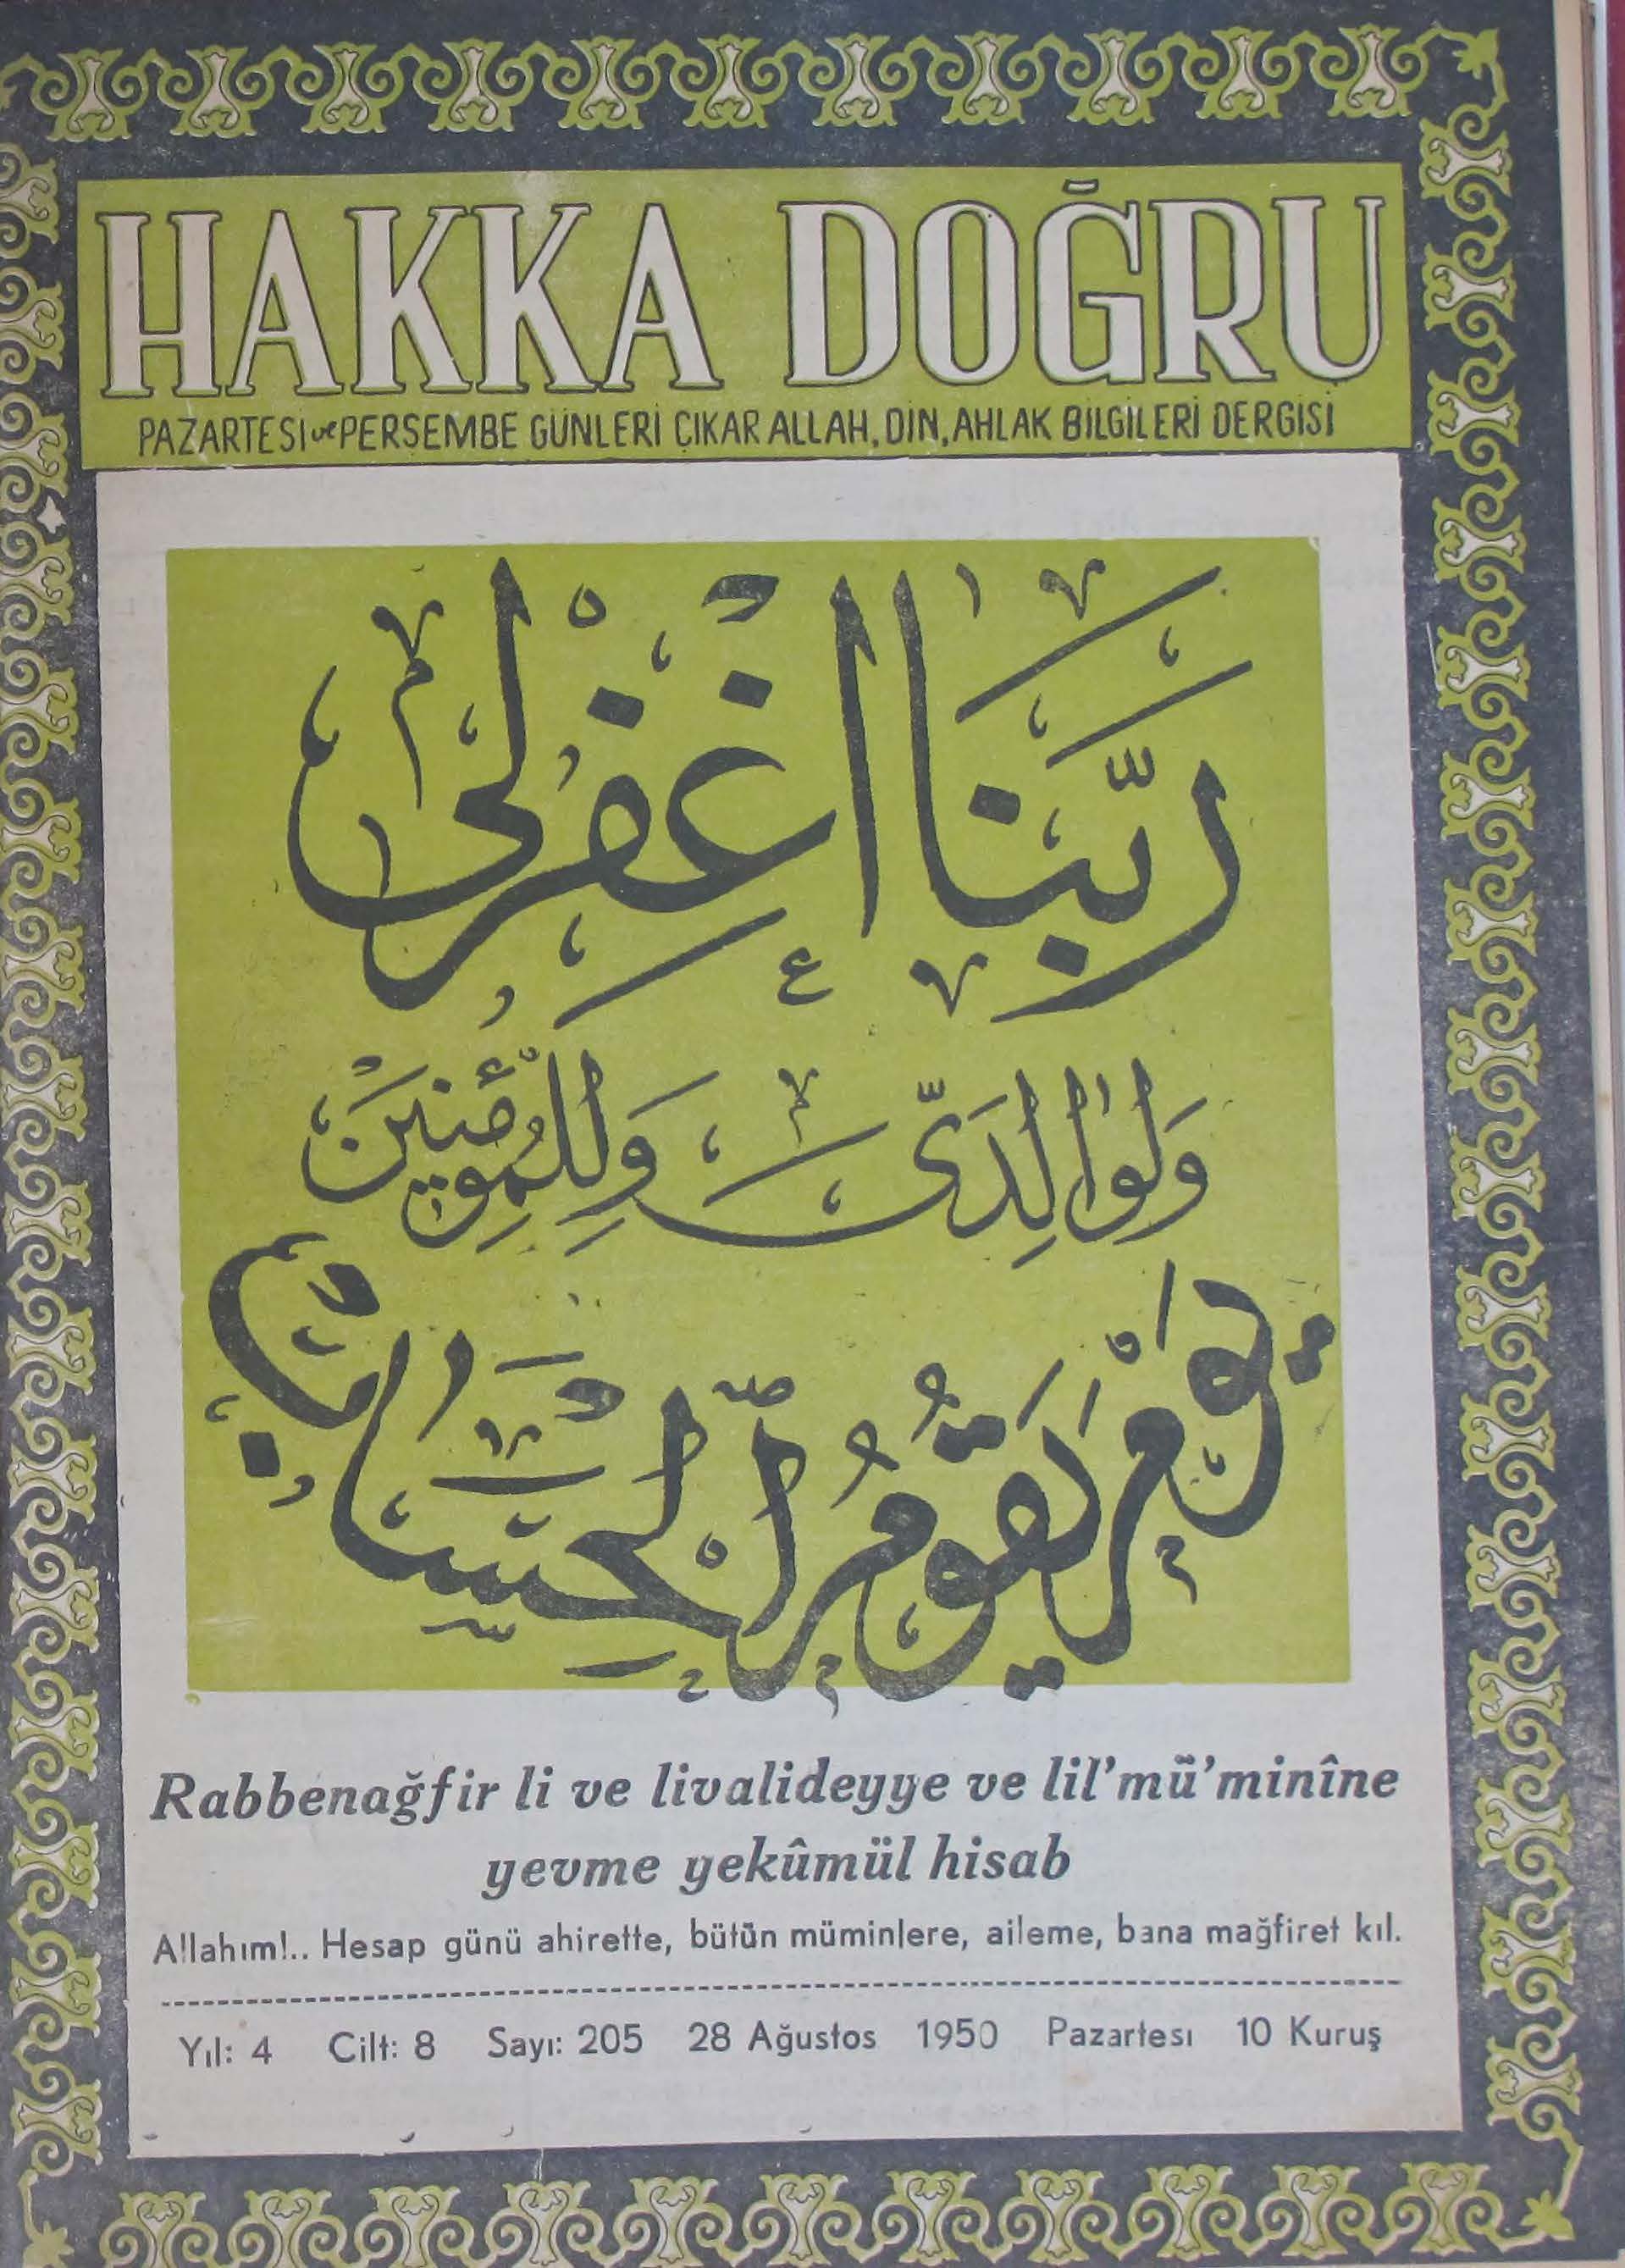 HAKKA DOĞRU
PAZARTESİ ve PERŞEMBE GÜNLERİ ÇIKAR ALLAH, DİN, AHLAK BİLGİLERİ DERGİSİ
رَبَّنَا اغْفِرْ لِى
وَلِوَالِدَىَّ وَلِلْمُؤْمِنِينَ
يَوْمَ يَقُومُ الْحِسَابُ
Rabbenağfir li ve livalideyye ve lil'mü'minîne
yevme yekûmül hisab
Allahım!.. Hesap günü ahirette, bütün müminlere, aileme, bana mağfiret kıl.
Yıl: 4 Cilt: 8 Sayı: 205 28 Ağustos 1950 Pazartesı 10 Kuruş